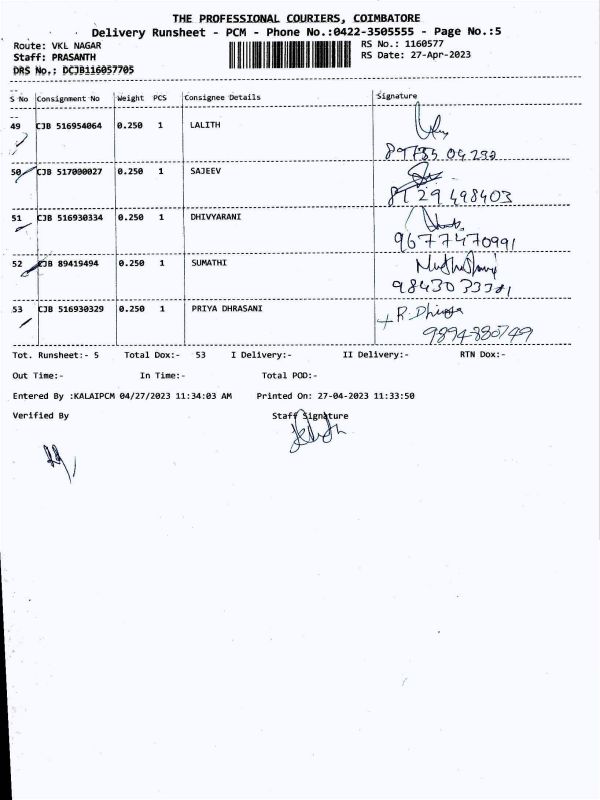 THE PROFESSIONAL COURIERS, COIMBATORE
Delivery Runsheet - PCM - Phone No.:0422-3505555 - Page No.:5
Route: VKL NAGAR RS No.: 1160577
Staff: PRASANTH RS Date: 27-Apr-2023
DRS No.: DCJB116057705
S No Consignment No Weight PCS Consignee Details Signature
49 CJB 516954064 0.250 1 LALITH
50 CJB 517000027 0.250 1 SAJEEV
8129498403
51 CJB 516930334 0.250 1 DHIVYARANI
9677470991
52 CJB 89419494 0.250 1 SUMATHI
9843033381
53 CJB 516930329 0.250 1 PRIYA DHRASANI
R. Dhivya
9894880749
Tot. Runsheet:- 5 Total Dox:- 53 I Delivery:- II Delivery:- RTN Dox:-
Out Time:- In Time:- Total POD:-
Entered By :KALAIPCM 04/27/2023 11:34:03 AM Printed On: 27-04-2023 11:33:50
Verified By Staff Signature